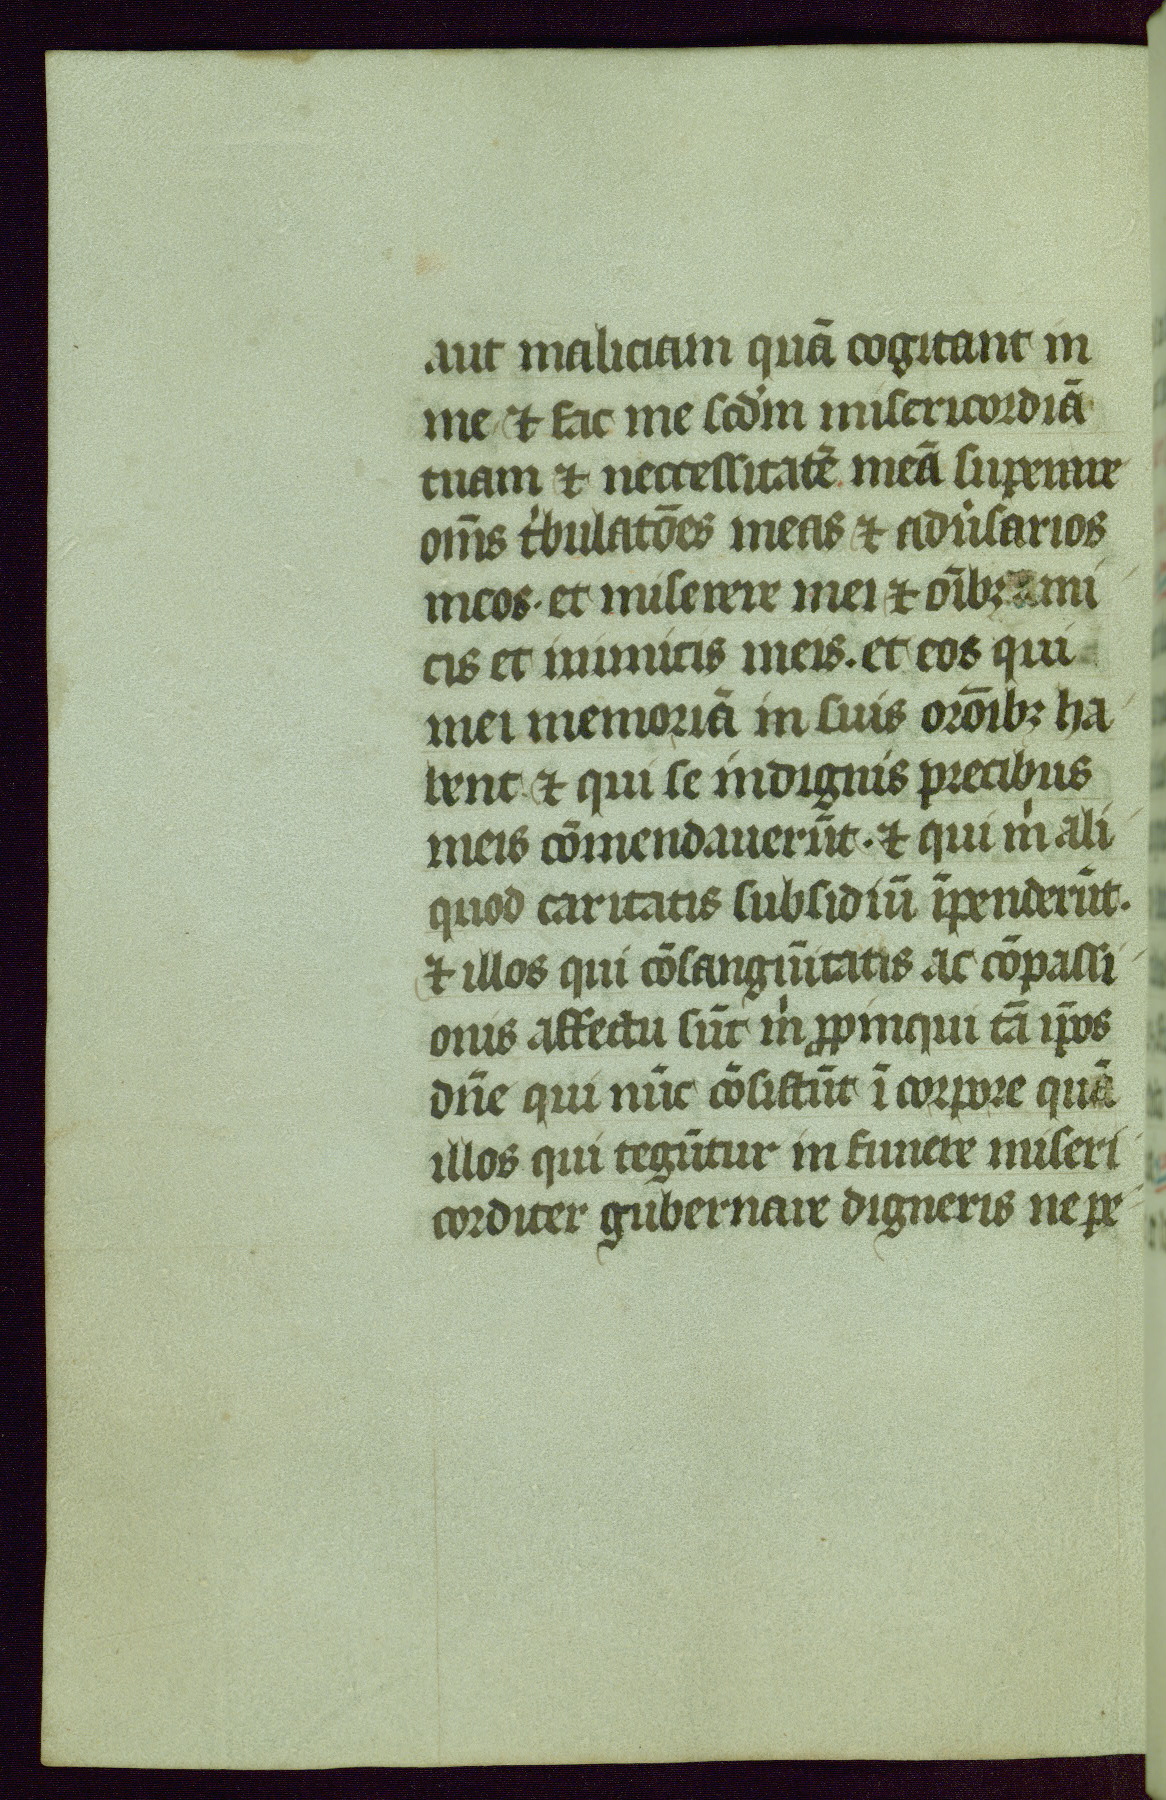 aut maliciam quā cogitant in
me ⁊ fac me scd'm misericordiā
tuam ⁊ neccessitatē meā superare
om̄s t'bulatōes meas ⁊ adu'sarios
meos. et miserere mei ⁊ oīb; ami
cis et inimicis meis. et eos qui
mei memoriā in suis orōib; ha
bent ⁊ qui se indignis precibus
meis cōmendauerūt. ⁊ qui m' ali
quod caritatis subsidiū īpenderūt.
⁊ illos qui cōsanguītatis ac cōpassi
onis affectu sūt m' ꝓpinqui tā ip̄os
dn̄e qui nūc cōsistūt ī corpore quā
illos qui tegūtur in funere miseri
corditer gubernare digneris ne pe